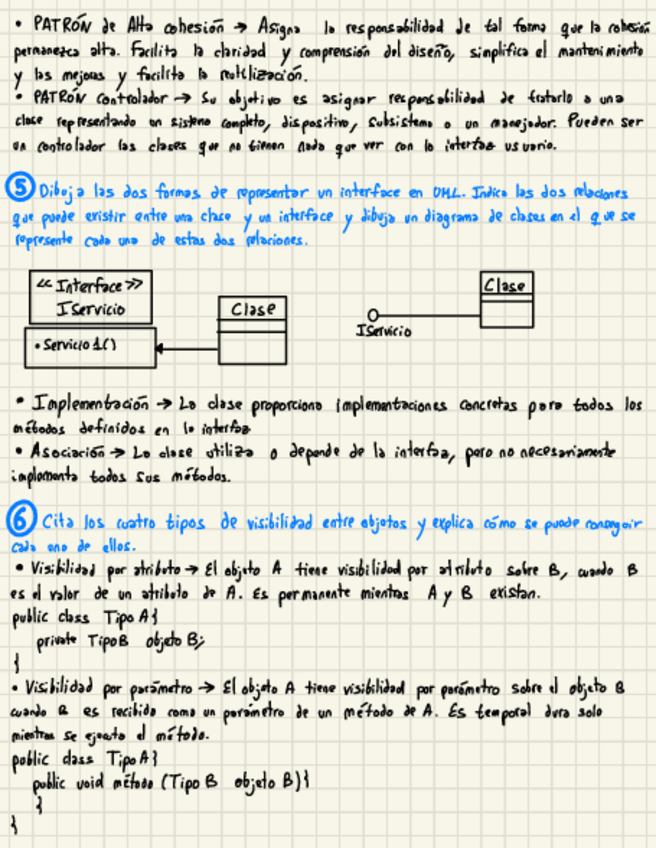 • PATRÓN de Alta cohesión → Asigna la responsabilidad de tal forma que la cohesión
permanezca alta. Facilita la claridad y comprensión del diseño, simplifica el mantenimiento
y las mejoras y facilita la reutilización.
• PATRÓN controlador → Su objetivo es asignar responsabilidad de tratarlo a una
clase representando un sistema completo, dispositivo, subsistema o un manejador. Pueden ser
un controlador las clases que no tienen nada que ver con la interfaz usuario.
5 Dibuja las dos formas de representar un interface en UML. Indica las dos relaciones
que puede existir entre una clase y un interface y dibuja un diagrama de clases en el que se
represente cada una de estas dos relaciones.
<< Interface >>
IServicio
• Servicio1()
Clase
Clase
IServicio
• Implementación → La clase proporciona implementaciones concretas para todos los
métodos definidos en la interfaz
• Asociación → La clase utiliza o depende de la interfaz, pero no necesariamente
implementa todos sus métodos.
6 Cita los cuatro tipos de visibilidad entre objetos y explica cómo se puede conseguir
cada uno de ellos.
• Visibilidad por atributo → El objeto A tiene visibilidad por atributo sobre B, cuando B
es el valor de un atributo de A. Es permanente mientras A y B existan.
public class TipoA{
private TipoB objetoB;
}
• Visibilidad por parámetro → El objeto A tiene visibilidad por parámetro sobre el objeto B
cuando B es recibido como un parámetro de un método de A. Es temporal dura solo
mientras se ejecuta el método.
public class TipoA{
public void método (TipoB objetoB){
}
}